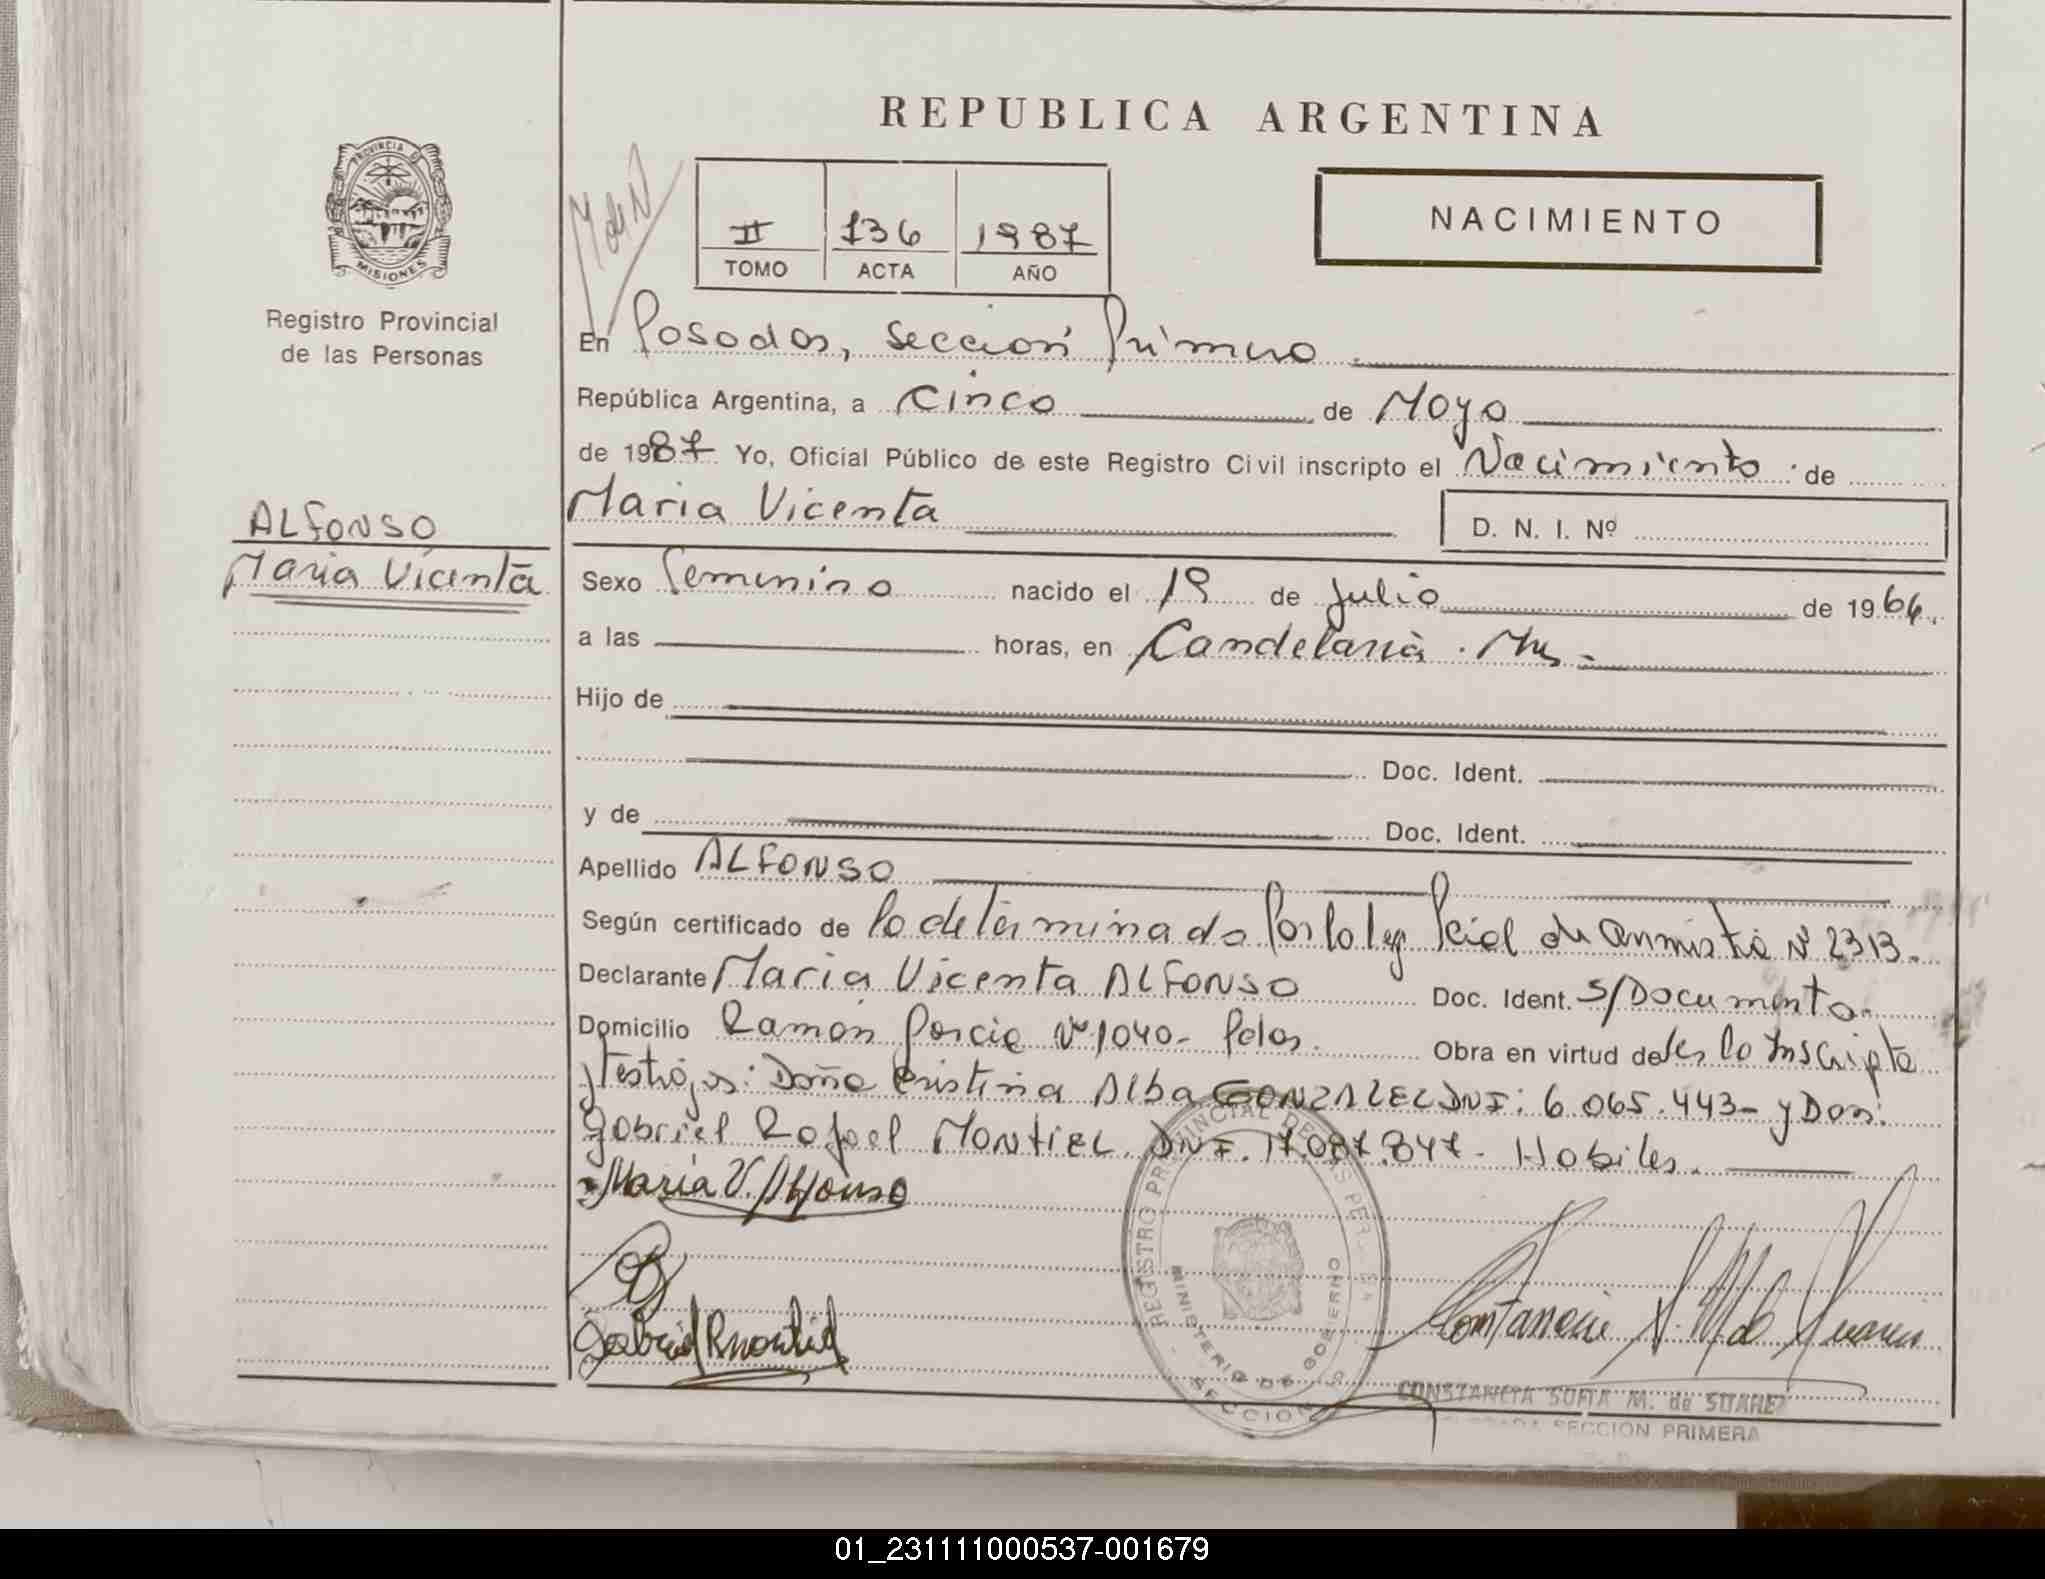 REPUBLICA ARGENTINA
NACIMIENTO
M de N
II 136 1987
TOMO ACTA AÑO
PROVINCIA DE
MISIONES
Registro Provincial
de las Personas
ALFONSO
Maria Vicenta
En Posadas, sección Primera.
República Argentina, a Cinco de Mayo
de 1987 Yo, Oficial Público de este Registro Civil inscripto el Nacimiento de
Maria Vicenta D. N. I. Nº
Sexo Femenino nacido el 19 de Julio de 1964.
a las horas, en Candelaria . Mns.
Hijo de
Doc. Ident.
y de Doc. Ident.
Apellido ALFONSO
Según certificado de lo determinado Por la ley Pcial de Anmistia Nº 2313.
Declarante Maria Vicenta ALFONSO Doc. Ident. S/Documento.
Domicilio Ramón García Nº 1040- Pdas. Obra en virtud de ser la Inscripta
y Testigos: Doña Cristina Alba GONZALEZ DNI: 6.065.443- y Don:
Gabriel Rafael MONTIEL. DNI. 17.087.847- Habiles.
Maria V. Alfonso
Gabriel R Montiel
REGISTRO PROVINCIAL DE LAS PERSONAS
MINISTERIO DE GOBIERNO
SECCION
Constancia S. M. de Suarez
CONSTANCIA SOFIA M. de SUAREZ
SECCION PRIMERA
01_231111000537-001679